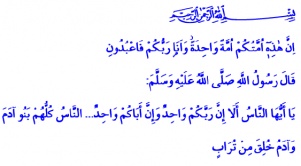 بِسْمِ اللَّهِ الرَّحْمَنِ الرَّحِيمِ
اِنَّ هٰذِهِ اُمَّتُكُمْ اُمَّةً وَاحِدَةً وَاَنَا رَبُّكُمْ فَاعْبُدُونِ
قَالَ رَسُولُ اللَّهِ صَلَّى اللَّهُ عَلَيْهِ وَسَلَّمَ:
يَا أَيُّهَا النَّاسُ أَلَا إِنَّ رَبَّكُمْ وَاحِدٌ وَإِنَّ أَبَاكُمْ وَاحِدٌ... النَّاسُ كُلُّهُمْ بَنُو آدَمَ
وَآدَمُ خُلِقَ مِنْ تُرَابٍ